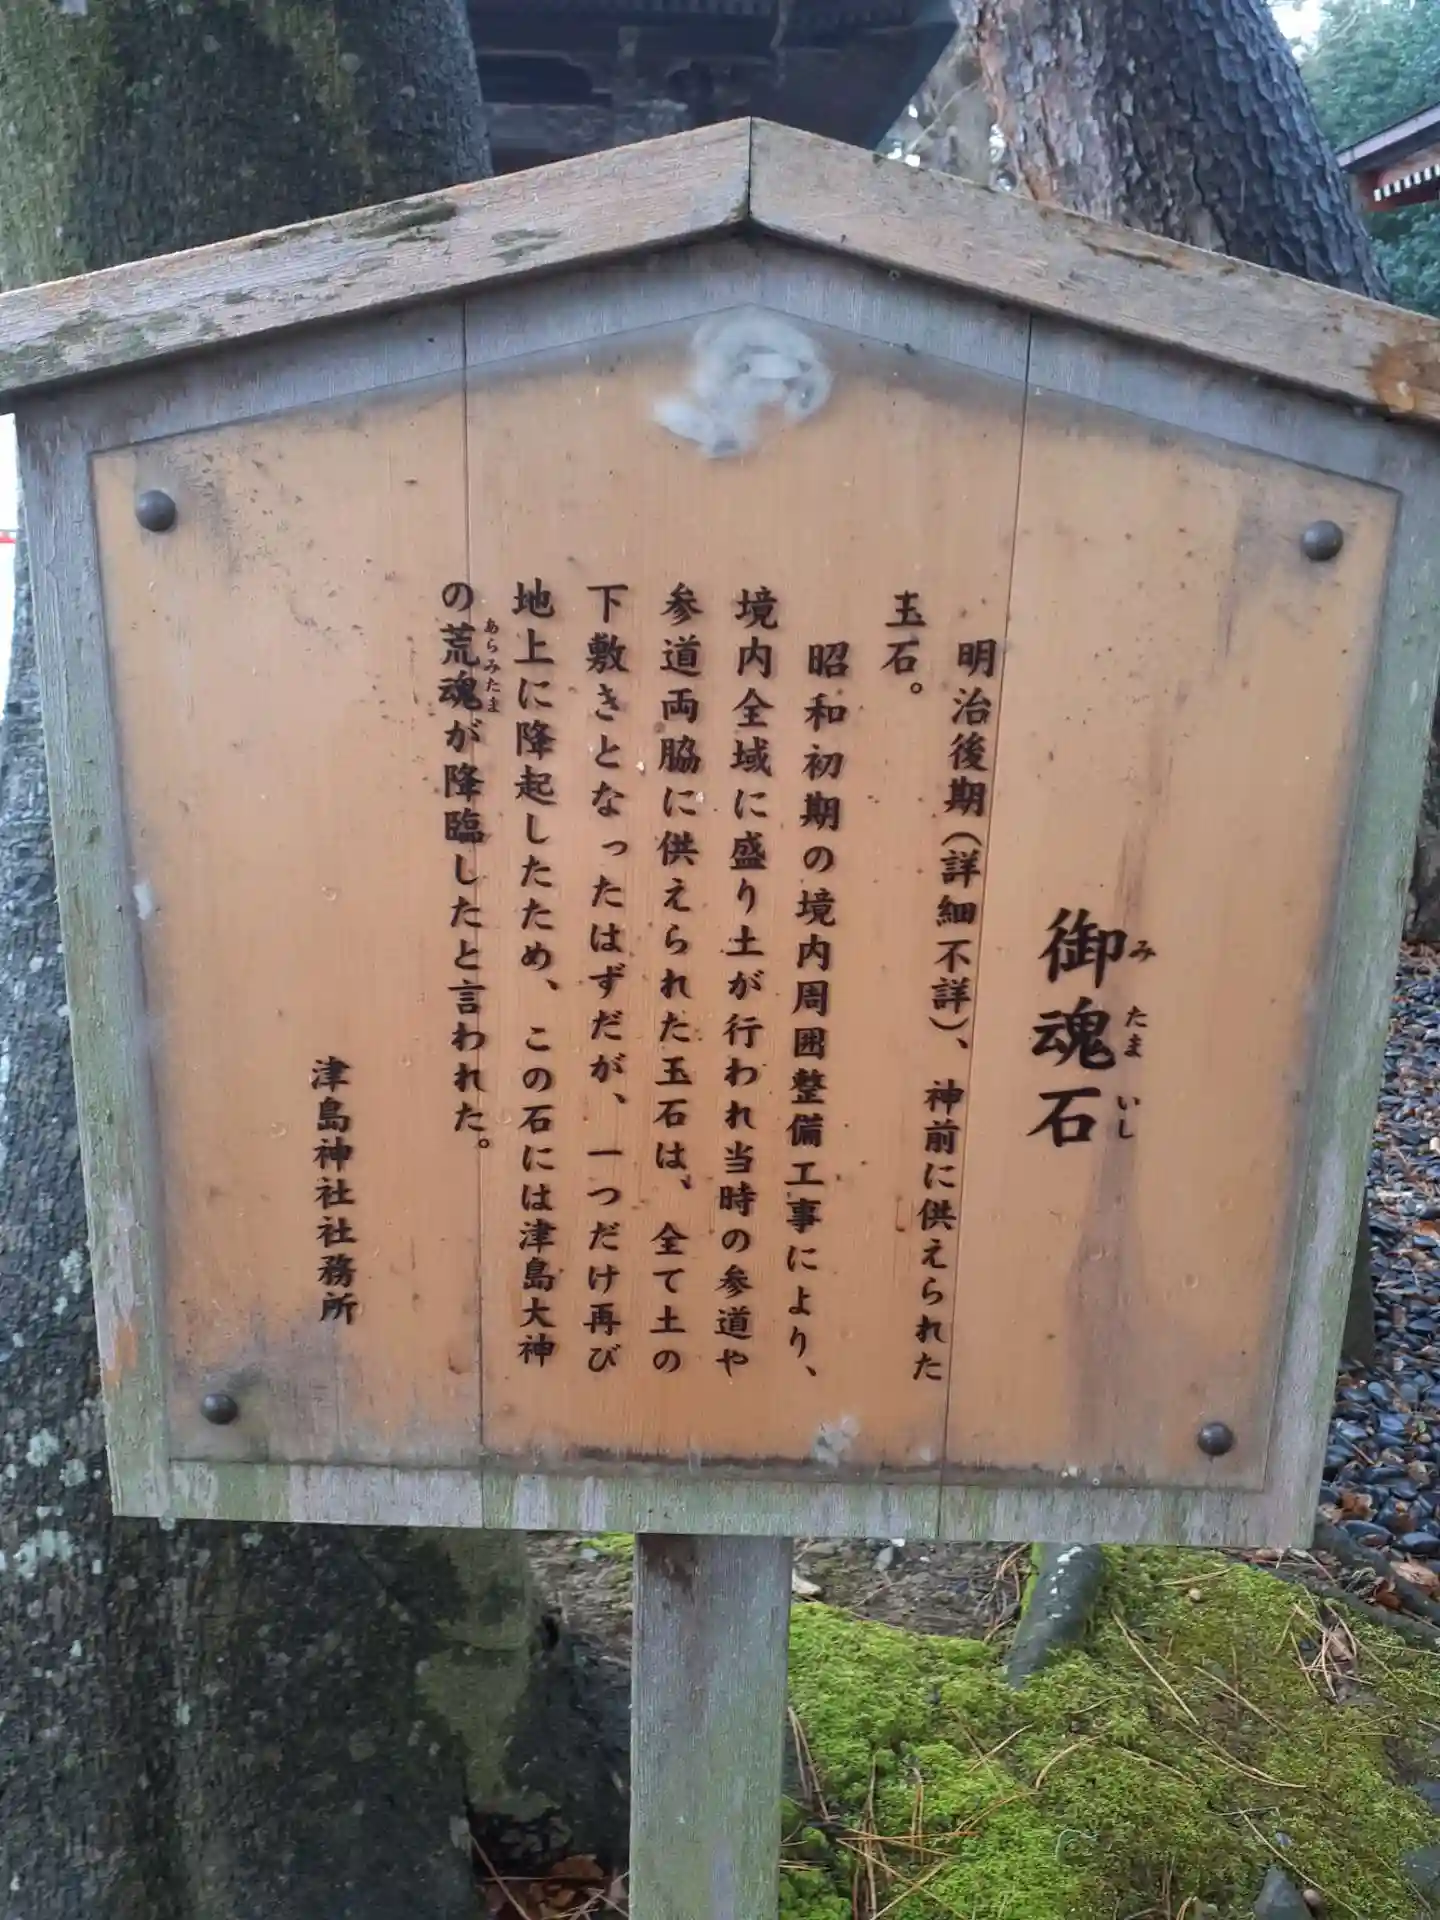 御魂石
みたまいし
明治後期(詳細不詳)、神前に供えられた
玉石。
昭和初期の境内周囲整備工事により、
境内全域に盛り土が行われ当時の参道や
参道両脇に供えられた玉石は、全て土の
下敷きとなったはずだが、一つだけ再び
地上に降起したため、この石には津島大神
の荒魂が降臨したと言われた。
あらみたま
津島神社社務所